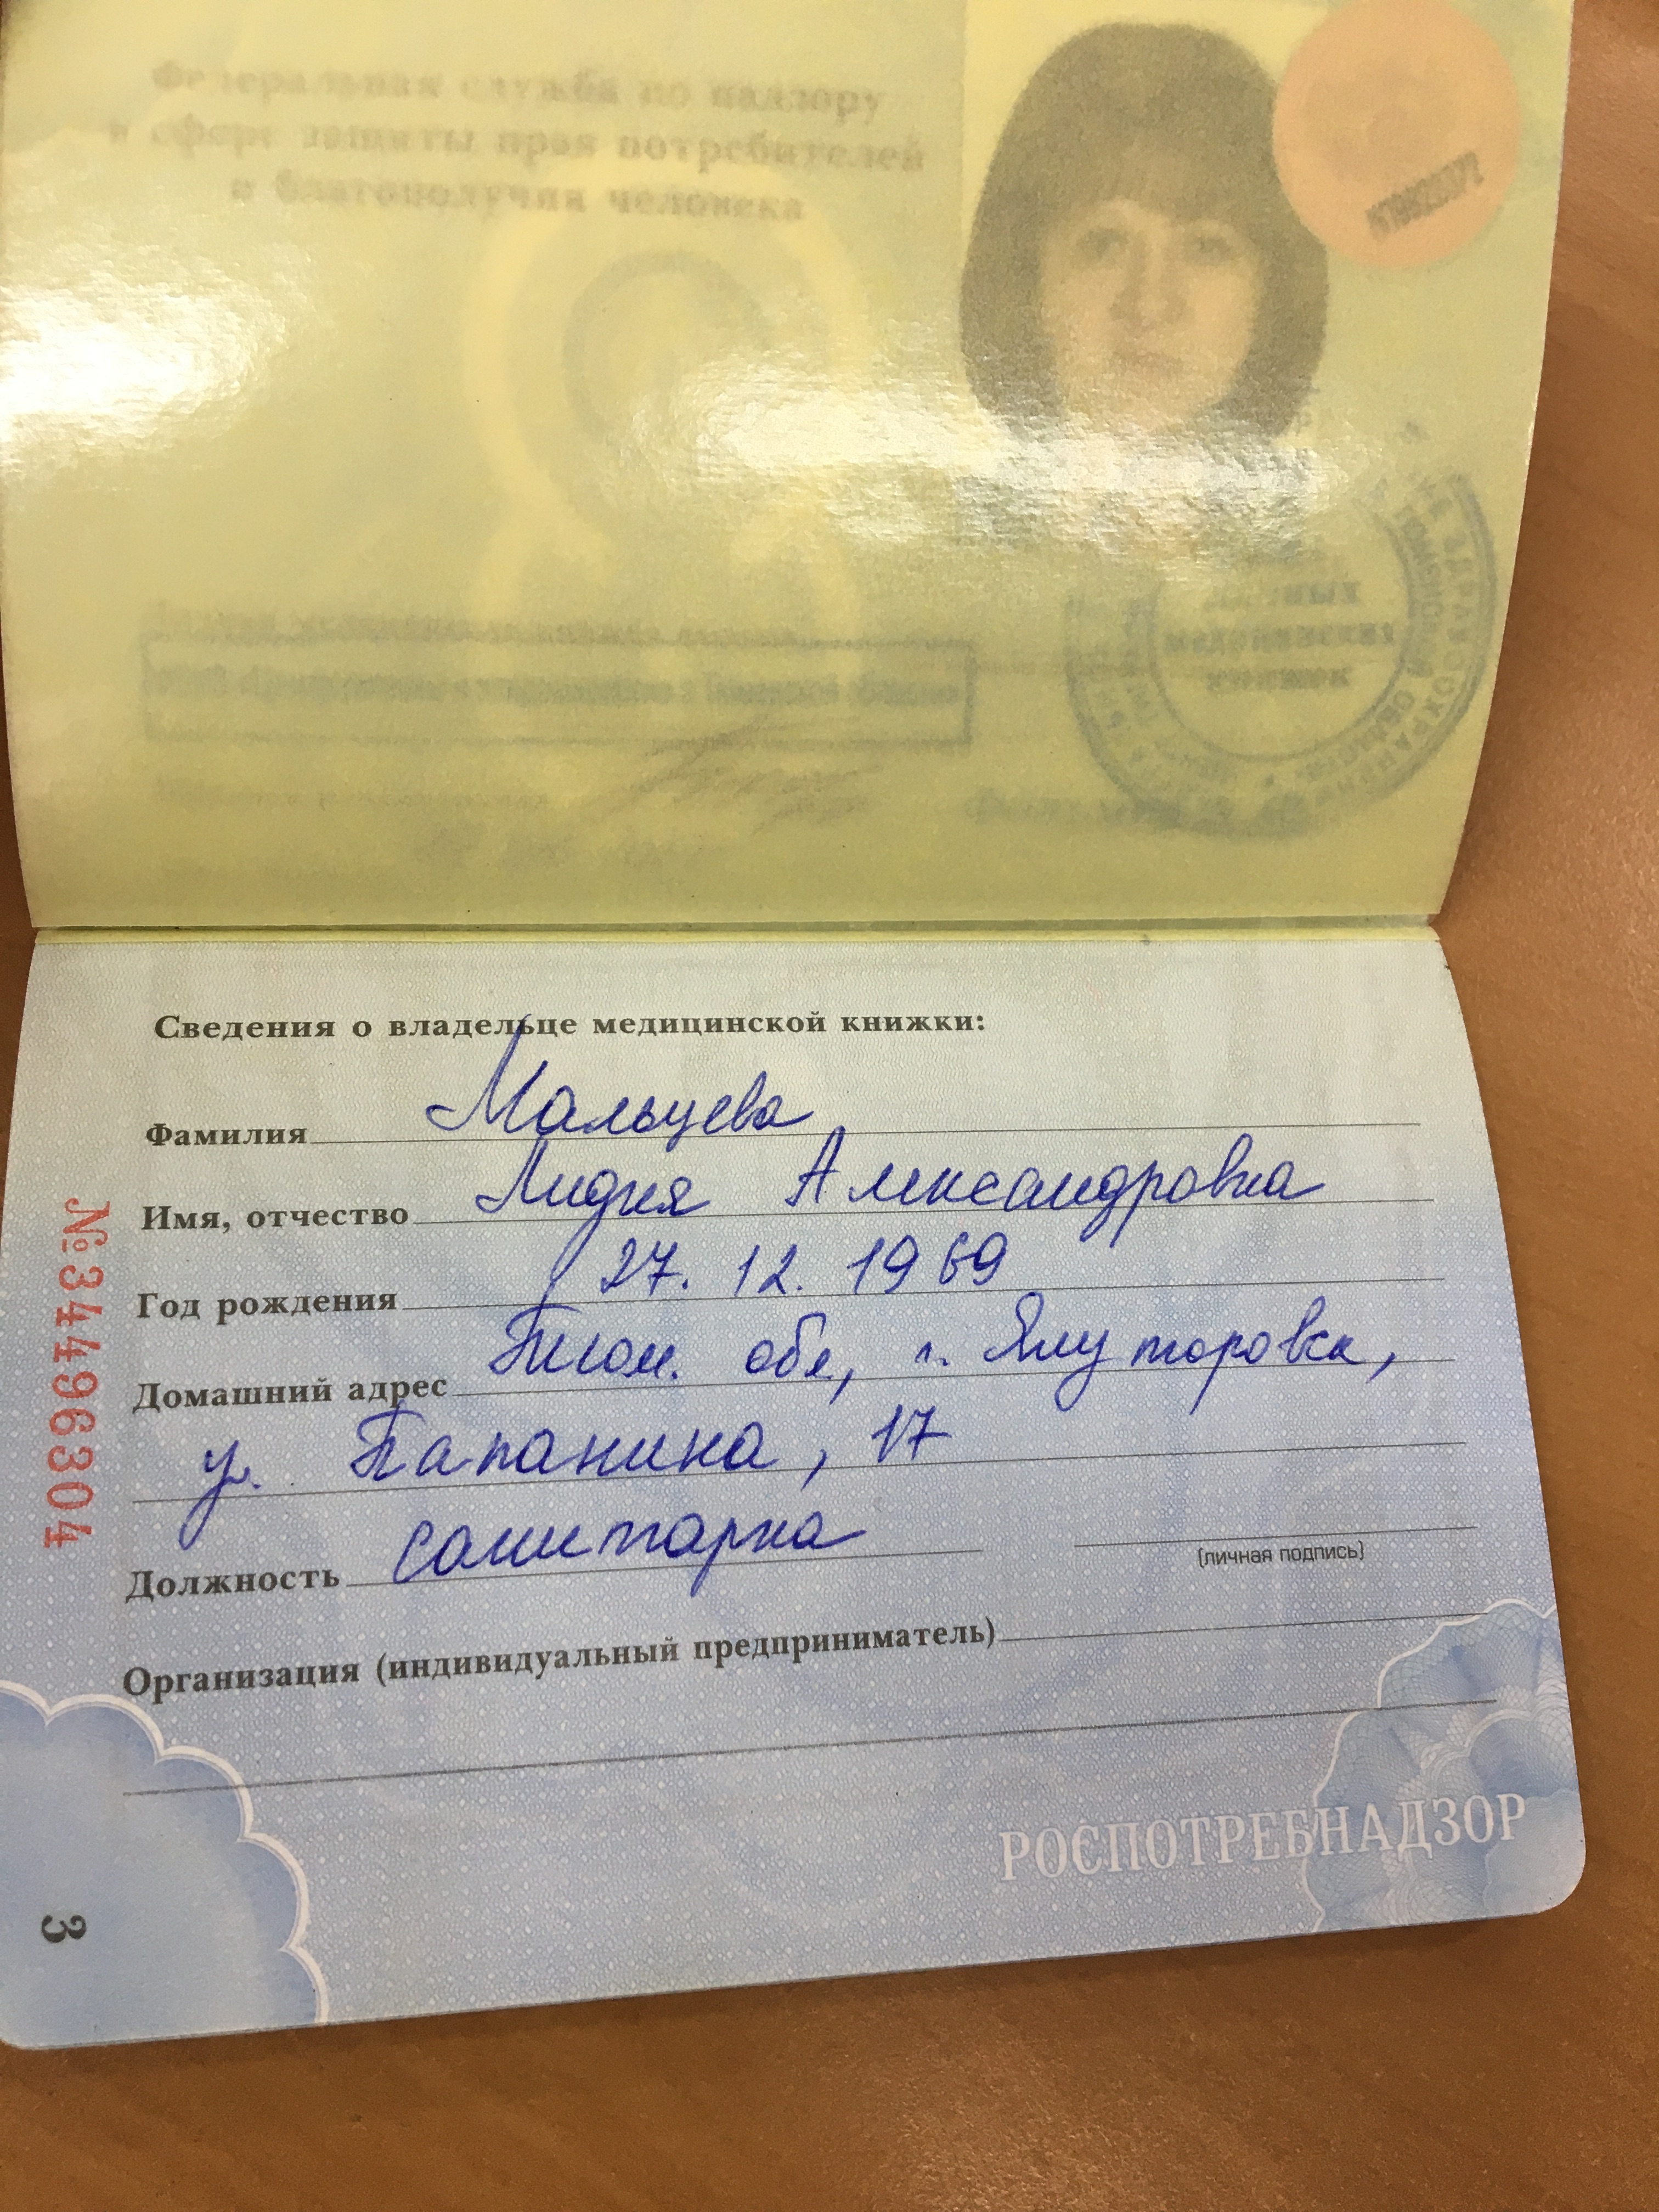 Федеральная служба по надзору
в сфере защиты прав потребителей
и благополучия человека
медицинских
книжек
Сведения о владельце медицинской книжки:
Фамилия Мальцева
Имя, отчество Лидия Александровна
Год рождения 27. 12. 1969
Домашний адрес Тюм. обл, г. Ялуторовск,
у. Папанина, 17
Должность санитарка
(личная подпись)
Организация (индивидуальный предприниматель)
РОСПОТРЕБНАДЗОР
№34496304
3